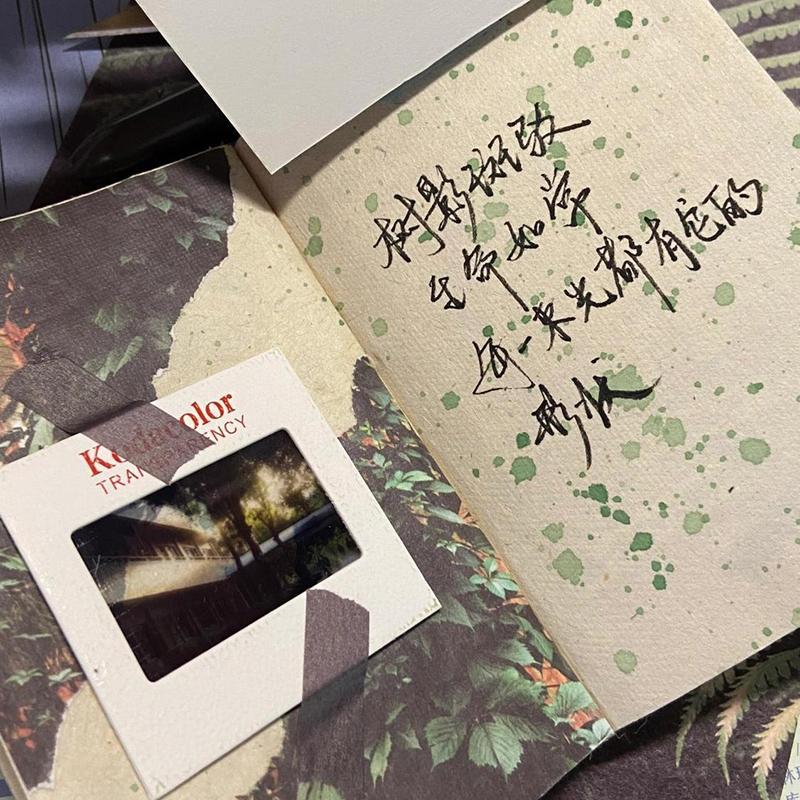 Kodacolor
TRANSPARENCY
树影斑驳
生命如常
每一束光都有它的
形状